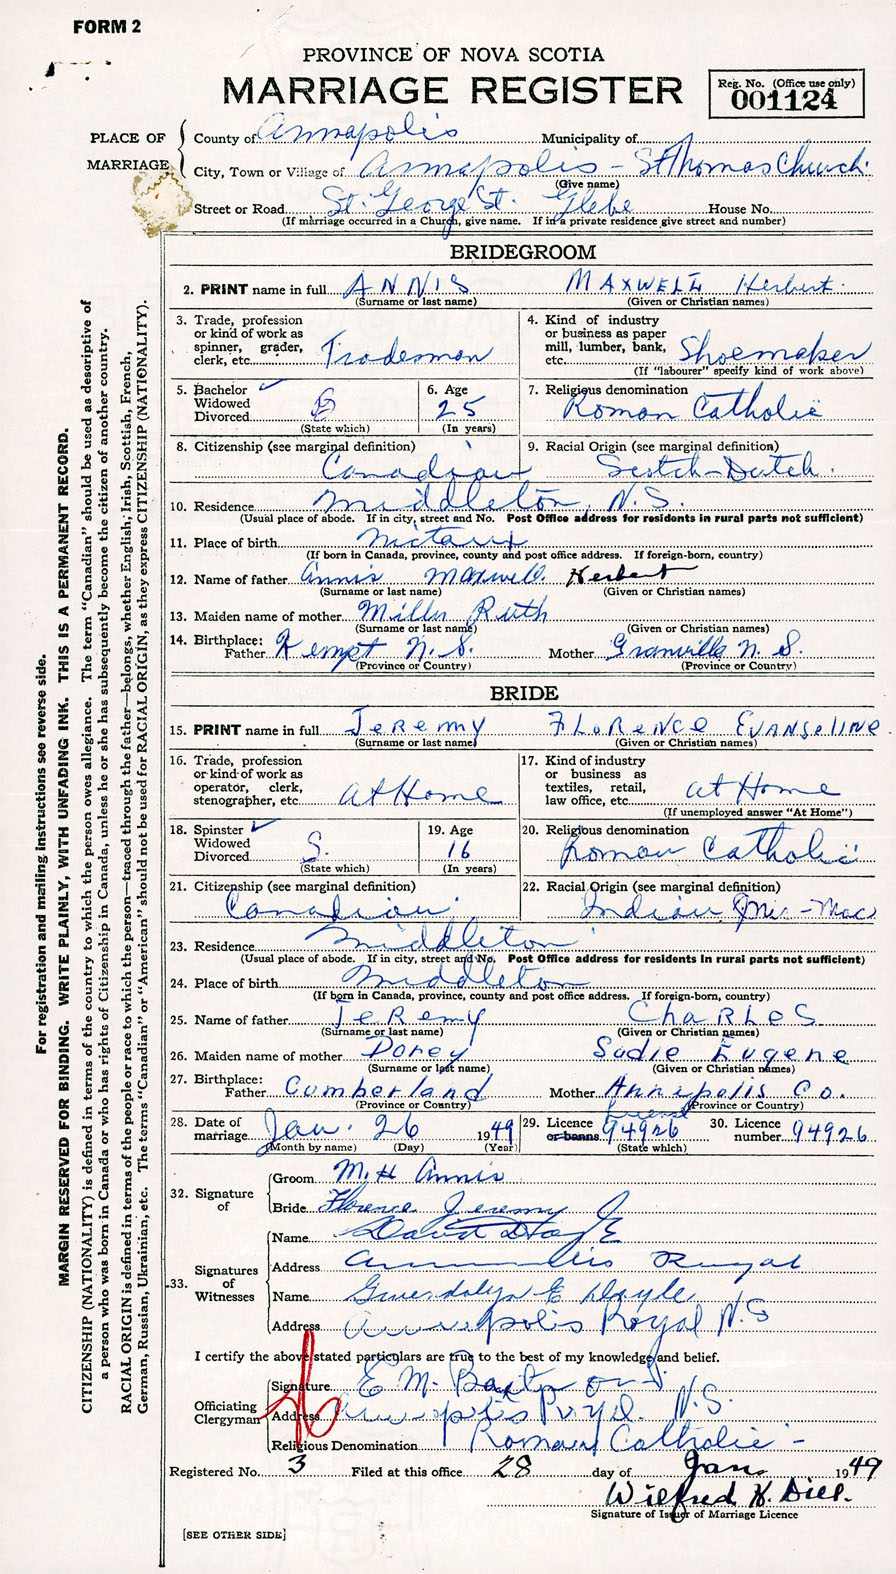 FORM 2
PROVINCE OF NOVA SCOTIA
MARRIAGE REGISTER
Reg. No. (Office use only)
001124
PLACE OF MARRIAGE
County of Annapolis Municipality of
City, Town or Village of Annapolis - St Thomas Church
(Give name)
Street or Road St. George St. Glebe House No.
(If marriage occurred in a Church, give name. If in a private residence give street and number)
BRIDEGROOM
2. PRINT name in full ANNIS MAXWELL Herbert
(Surname or last name) (Given or Christian names)
3. Trade, profession or kind of work as spinner, grader, clerk, etc. Tradesman
4. Kind of industry or business as paper mill, lumber, bank, etc. Shoemaker
(If "labourer" specify kind of work above)
5. Bachelor ✓ Widowed Divorced B
(State which)
6. Age 25
(In years)
7. Religious denomination Roman Catholic
8. Citizenship (see marginal definition) Canadian
9. Racial Origin (see marginal definition) Scotch-Dutch
10. Residence Middleton, N.S.
(Usual place of abode. If in city, street and No. Post Office address for residents in rural parts not sufficient)
11. Place of birth Nictaux
(If born in Canada, province, county and post office address. If foreign-born, country)
12. Name of father Annis Maxwell Herbert
(Surname or last name) (Given or Christian names)
13. Maiden name of mother Miller Ruth
(Surname or last name) (Given or Christian names)
14. Birthplace: Father Kempt N.S. Mother Granville N.S.
(Province or Country) (Province or Country)
BRIDE
15. PRINT name in full JEREMY FLORENCE EVANGELINE
(Surname or last name) (Given or Christian names)
16. Trade, profession or kind of work as operator, clerk, stenographer, etc. at Home
17. Kind of industry or business as textiles, retail, law office, etc. at Home
(If unemployed answer "At Home")
18. Spinster ✓ Widowed Divorced S.
(State which)
19. Age 16
(In years)
20. Religious denomination Roman Catholic
21. Citizenship (see marginal definition) Canadian
22. Racial Origin (see marginal definition) Indian Mic-Mac
23. Residence Middleton
(Usual place of abode. If in city, street and No. Post Office address for residents in rural parts not sufficient)
24. Place of birth Middleton
(If born in Canada, province, county and post office address. If foreign-born, country)
25. Name of father JEREMY CHARLES
(Surname or last name) (Given or Christian names)
26. Maiden name of mother Dorey Sadie Eugene
(Surname or last name) (Given or Christian names)
27. Birthplace: Father Cumberland Mother Annapolis Co.
(Province or Country) (Province or Country)
28. Date of marriage Jan. 26 1949
(Month by name) (Day) (Year)
29. Licence or banns 94926
(State which)
30. Licence number 94926
32. Signature of
Groom M. H Annis
Bride Florence Jeremy
33. Signatures of Witnesses
Name David
Address Royal
Name Gwendolyn E Doyle
Address Annapolis Royal N.S
I certify the above stated particulars are true to the best of my knowledge and belief.
Officiating Clergyman
Signature E M.
Address Annapolis Royal. N.S.
Religious Denomination Roman Catholic -
Registered No. 3 Filed at this office 28 day of Jan. 1949
Wilfred K. Dill.
Signature of Issuer of Marriage Licence
[SEE OTHER SIDE]
For registration and mailing instructions see reverse side.
MARGIN RESERVED FOR BINDING. WRITE PLAINLY, WITH UNFADING INK. THIS IS A PERMANENT RECORD.
CITIZENSHIP (NATIONALITY) is defined in terms of the country to which the person owes allegiance. The term "Canadian" should be used as descriptive of
a person who was born in Canada or who has rights of Citizenship in Canada, unless he or she has subsequently become the citizen of another country.
RACIAL ORIGIN is defined in terms of the people or race to which the person—traced through the father—belongs, whether English, Irish, Scottish, French,
German, Russian, Ukrainian, etc. The terms "Canadian" or "American" should not be used for RACIAL ORIGIN, as they express CITIZENSHIP (NATIONALITY).